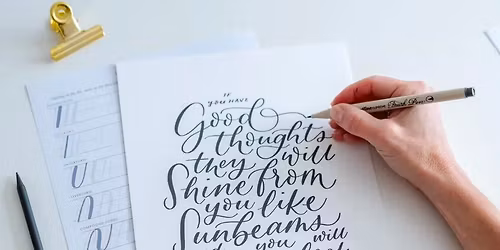 "YOU HAVE
Good
thoughts
they will
Shine from
you like
Sunbeams
you will
Brush Pen